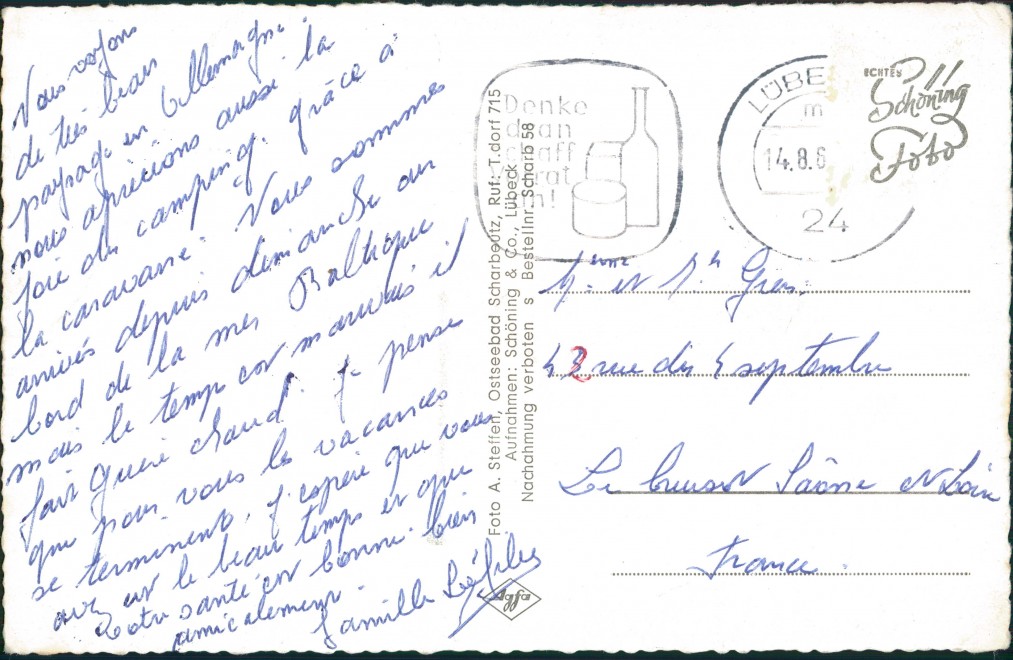 Nous voyons
de très beaux
paysage en Allemagne.
nous aprécions aussi la
joie du camping. grâce à
la caravane. Nous sommes
arrivés depuis dimanche au
bord de la mer Baltique
mais le temps est mauvais il
fait guère chaud. Je pense
que pour vous les vacances
se terminent, j'espère que vous
avez eu le beau temps et que
votre santé est bonne. bien
amicalement.
famille
Foto A. Steffen, Ostseebad Scharbeutz, Ruf: T.dorf 715
Aufnahmen: Schöning & Co., Lübeck
Nachahmung verboten s Bestellnr. Scharb 58
Agfa
Denke
dran
schaff
Vorrat
an!
LÜBE
m
14.8.6
24
ECHTES
Schöning
Foto
Mme et Mr Gres.
rue du 4 septembre
Le Creusot Saône et Loire
France.